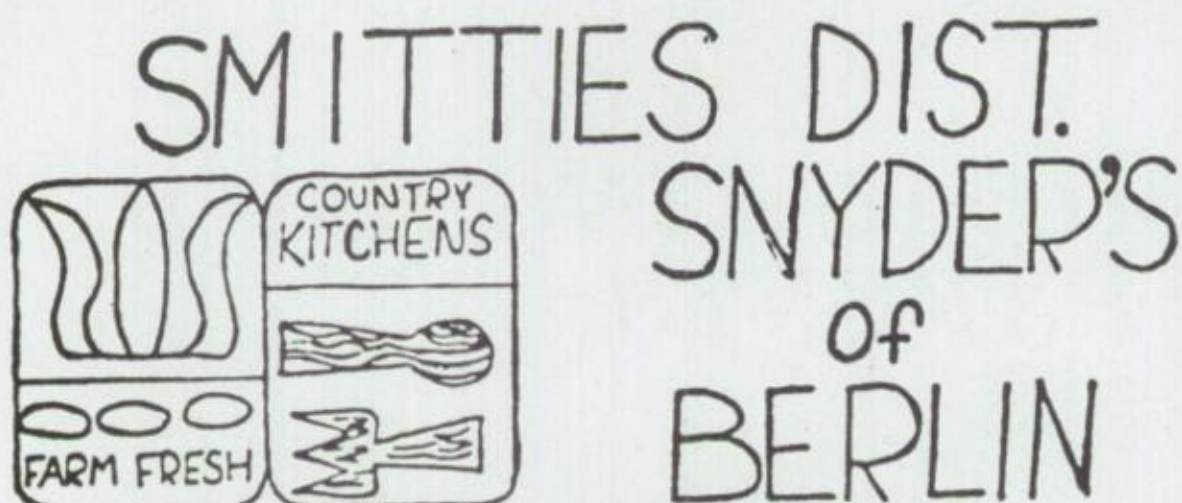 SMITTIES DIST.
SNYDER'S
of
BERLIN
COUNTRY
KITCHENS
FARM FRESH